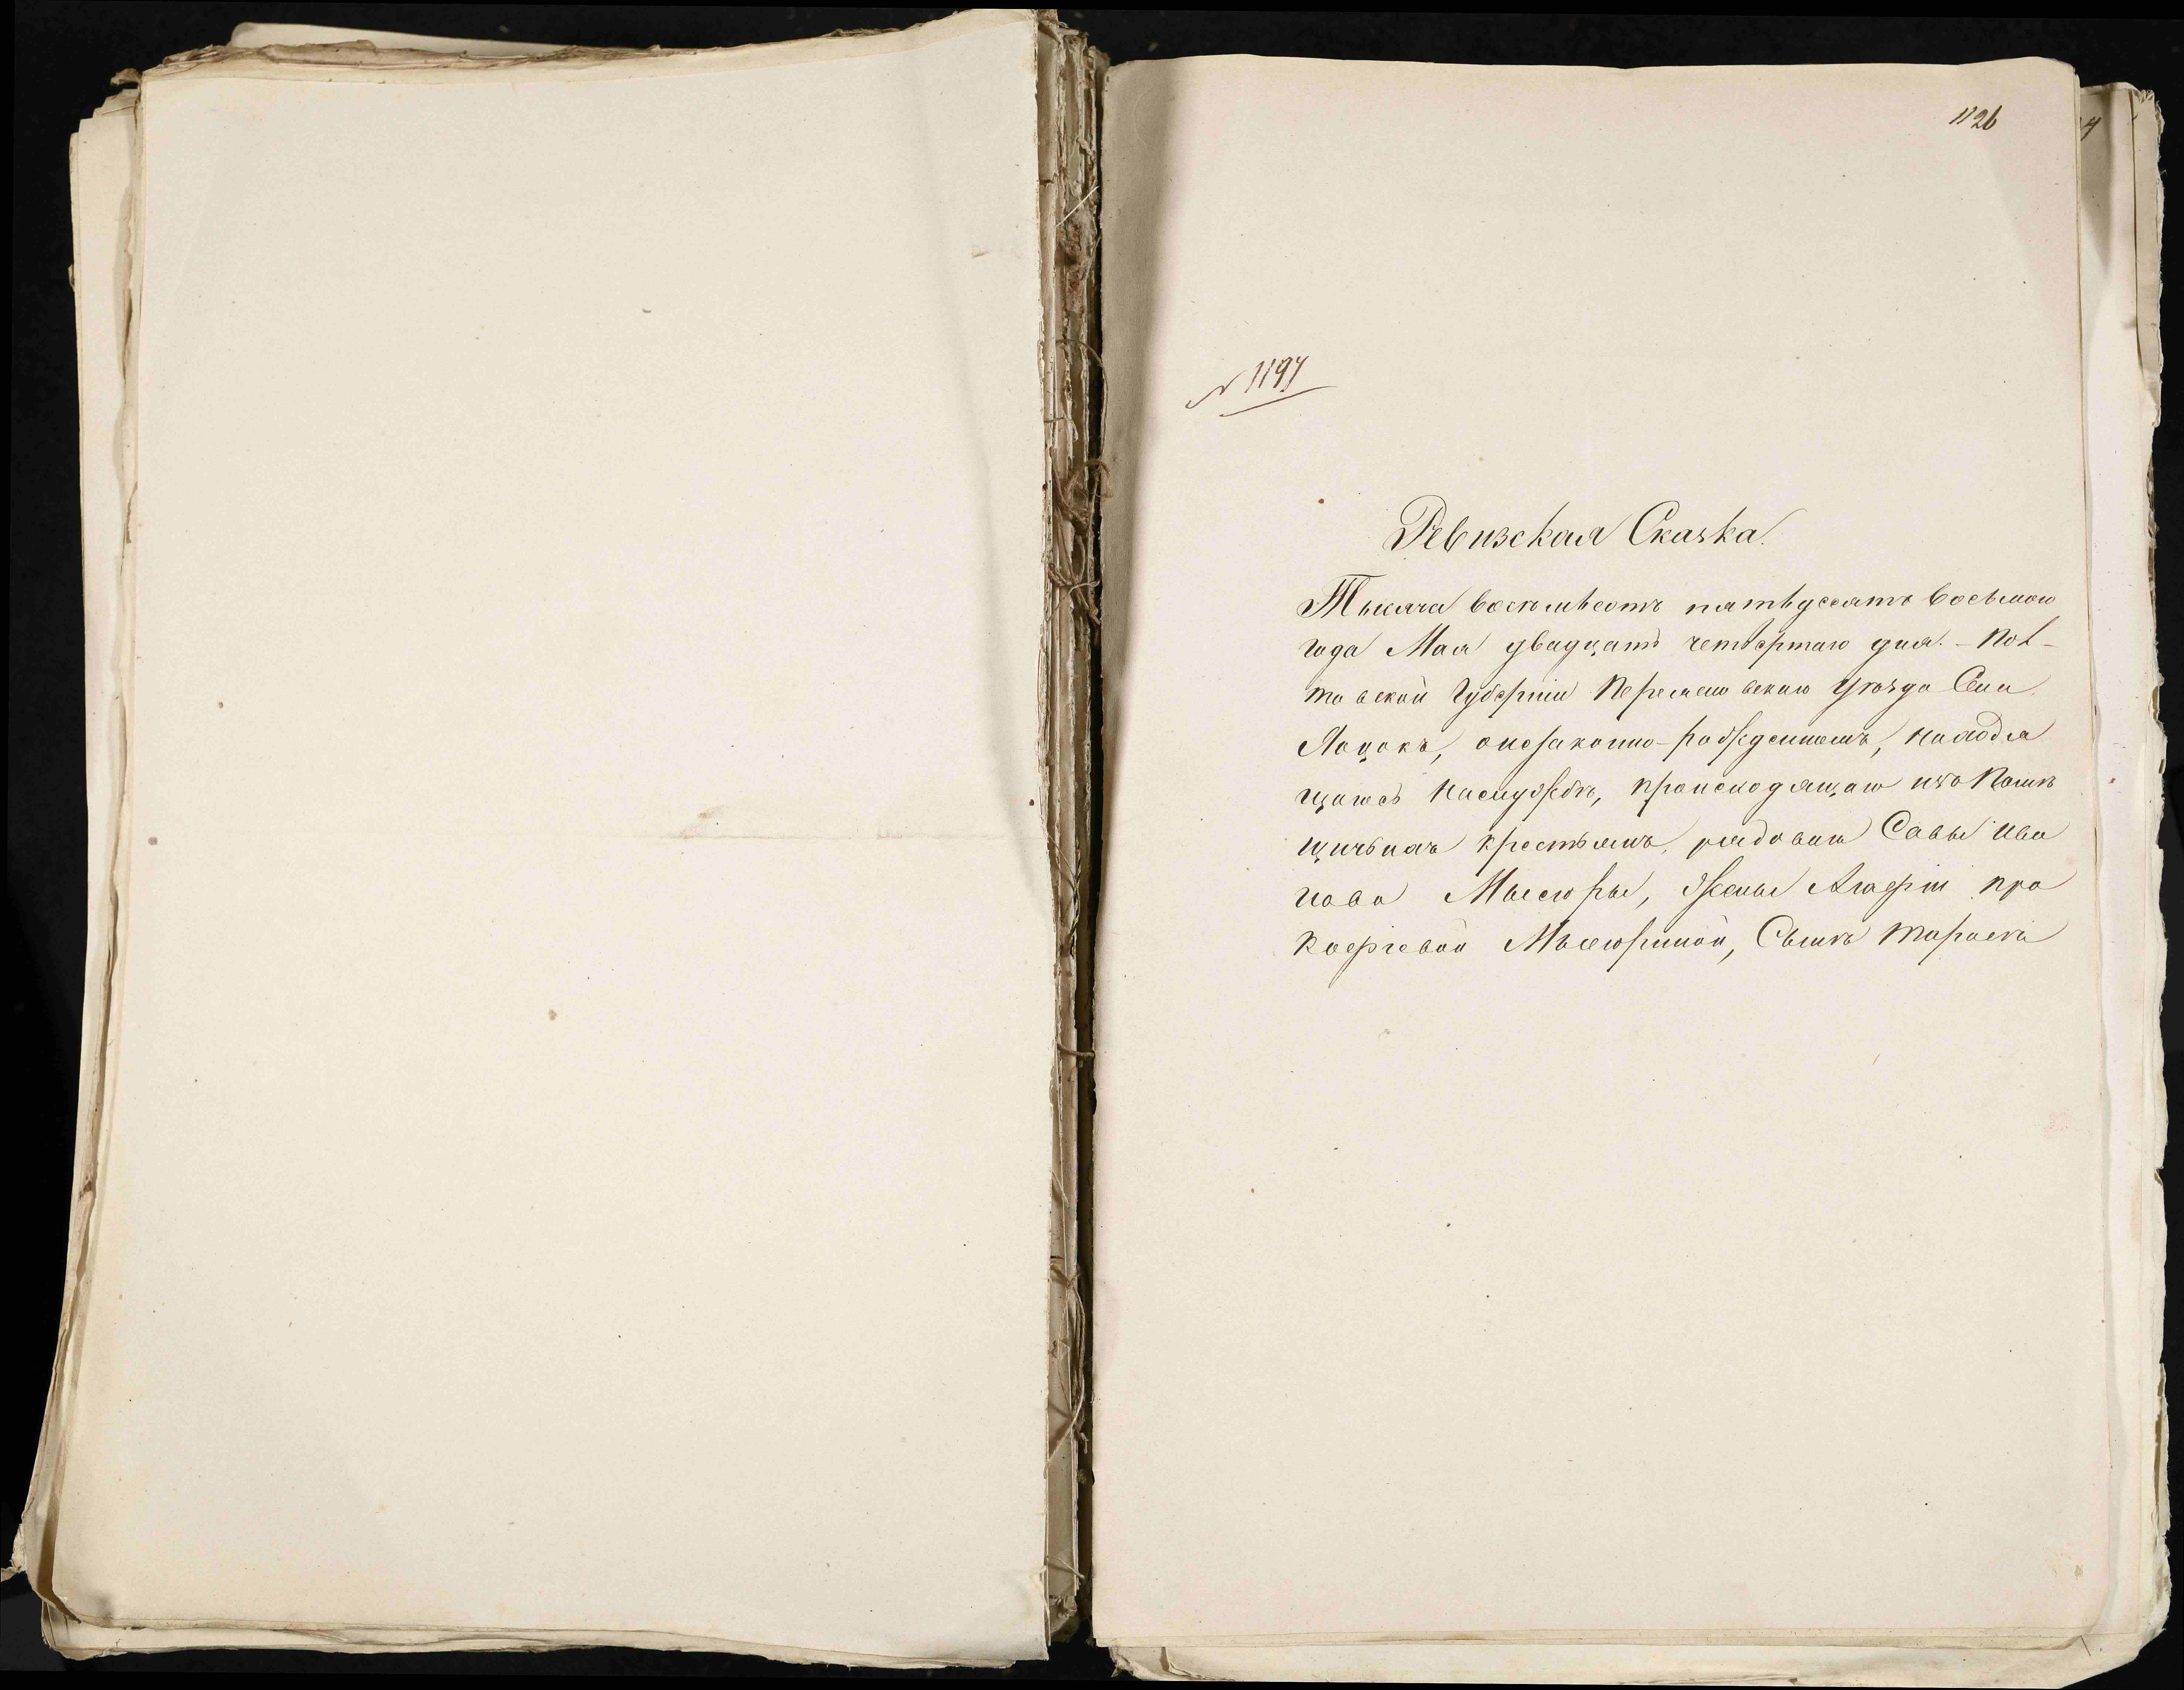 1126
4
№ 1197
Ревизская Сказка.
Тысяча восемьсотъ пятьдесятъ восьмаго
года Мая двадцать четвертаго дня. – Пол-
тавской Губерніи Переяславскаго Уѣзда Села
Лоцокъ, о незаконно-рожденномъ, находя
щагося на службѣ, происходящаго изъ Помѣ
щичьихъ крестьянъ, рядоваго Савы Ива
нова Мысюры, жены Агафіи Про
кофіевой Мысюриной, Сынѣ Тарасѣ